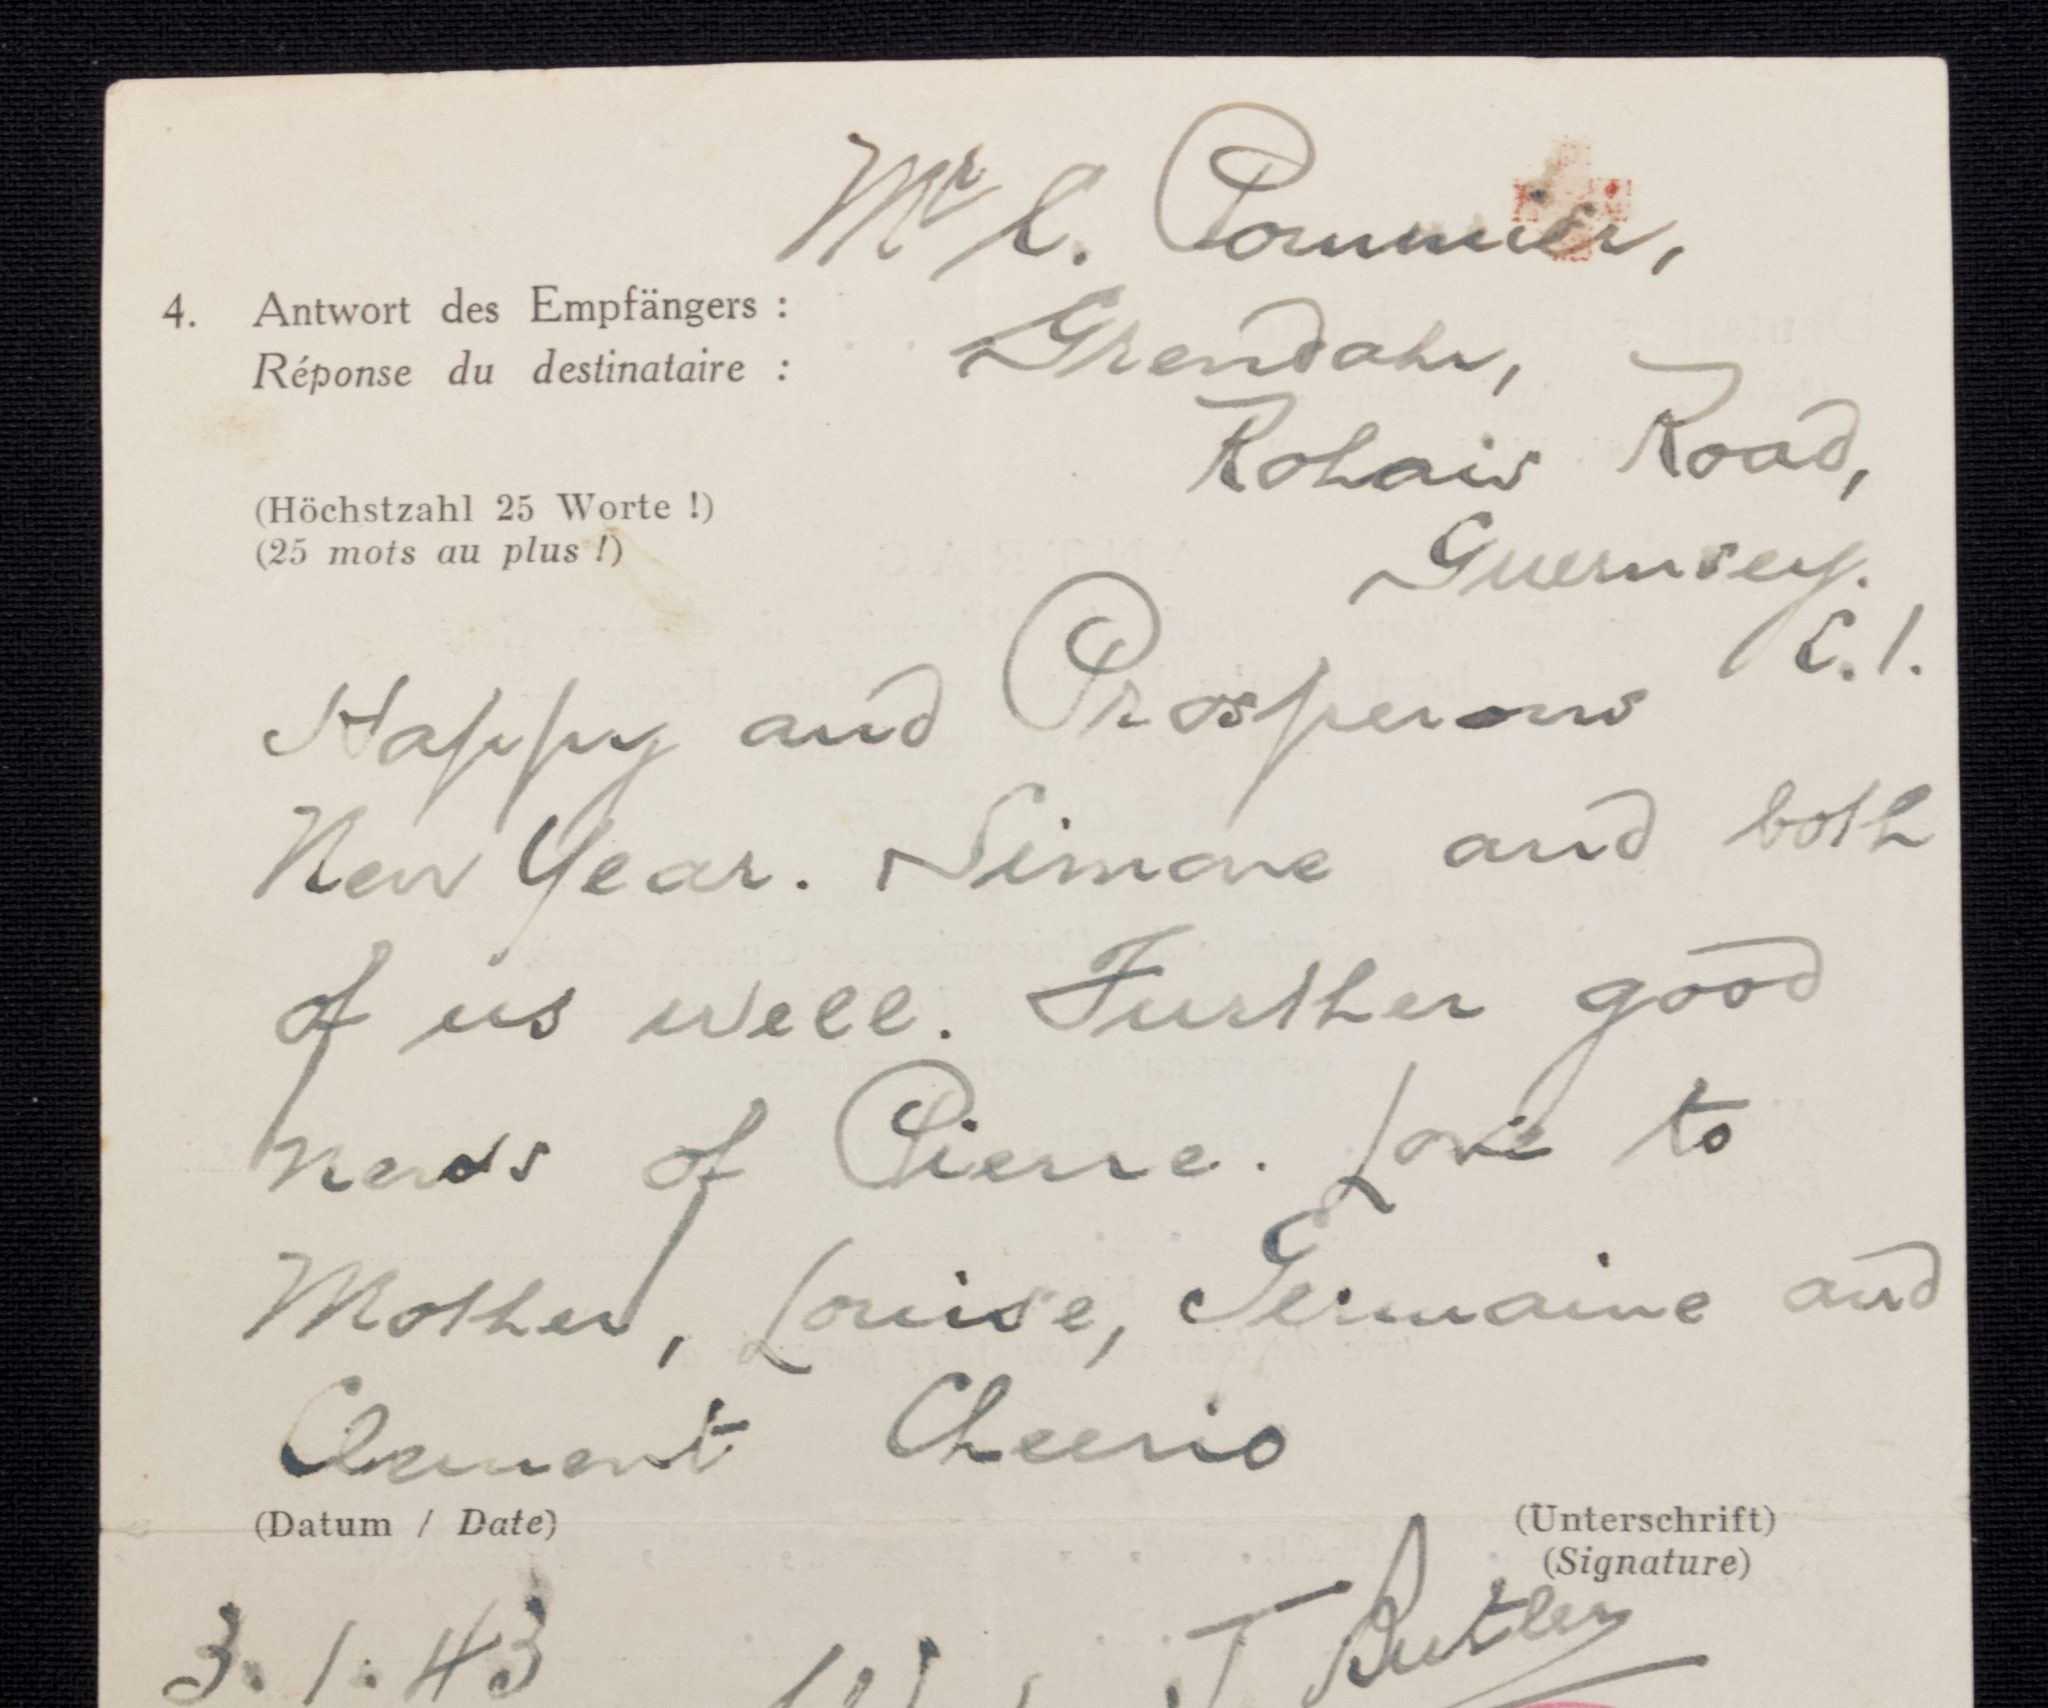 Mr C. Pommier,
4. Antwort des Empfängers :
Réponse du destinataire :
Grendahr,
Rohais Road,
(Höchstzahl 25 Worte !)
(25 mots au plus !)
Guernsey.
C.I.
Happy and Prosperous
New Year. Simone and both
of us well. Further good
news of Pierre. Love to
Mother, Louise, Germaine and
Clement Cheerio
(Datum / Date)
(Unterschrift)
(Signature)
3.1.43
T Butler